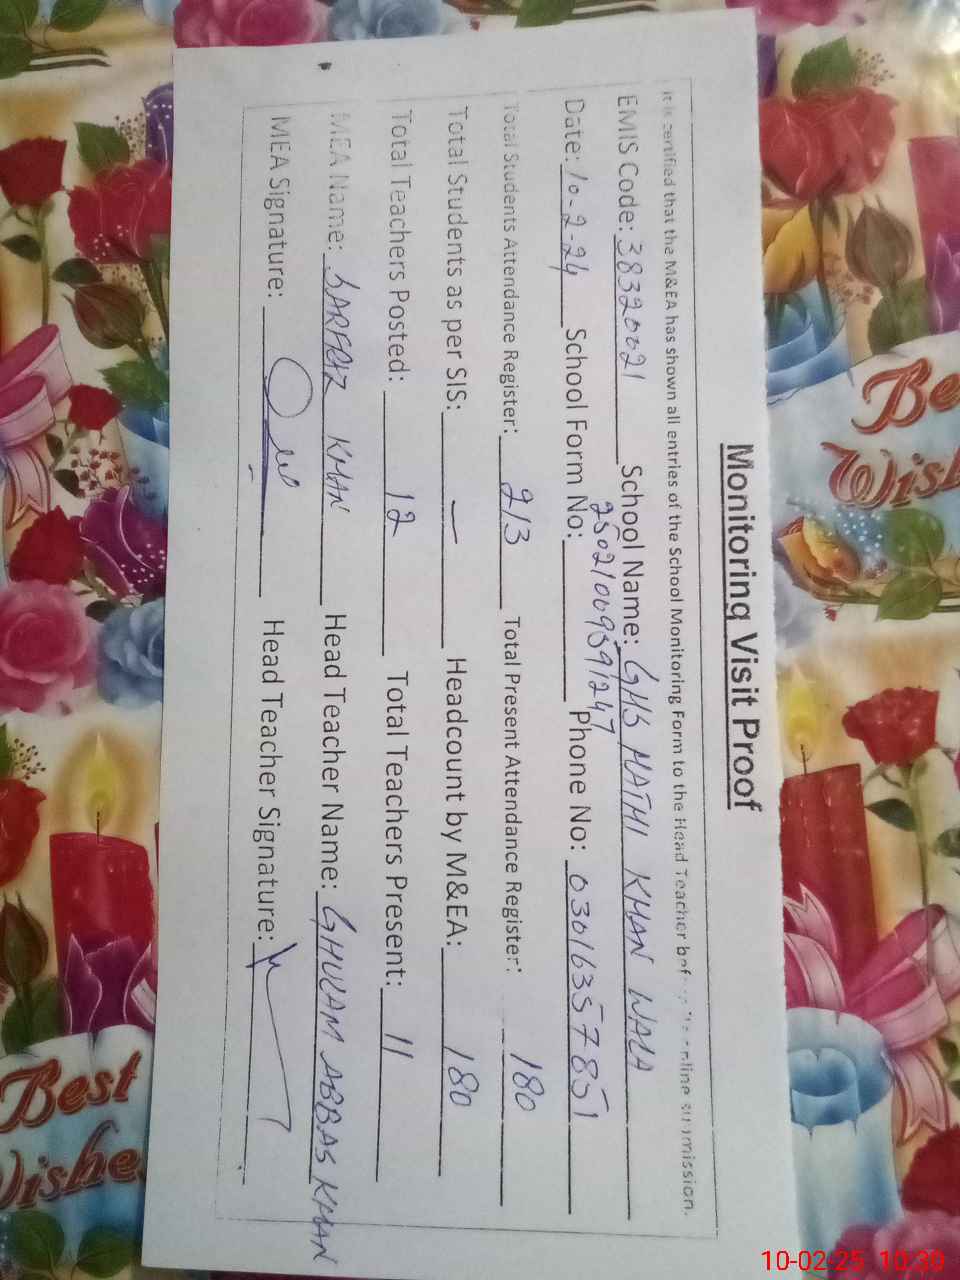 Monitoring Visit Proof
It is certified that the M&EA has shown all entries of the School Monitoring Form to the Head Teacher before the online submission.
EMIS Code: 38320021 School Name: GHS MATHI KHAN WALA
Date: 10-2-24 School Form No: 25021009591247 Phone No: 03016357851
Total Students Attendance Register: 213 Total Present Attendance Register: 180
Total Students as per SIS: — Headcount by M&EA: 180
Total Teachers Posted: 12 Total Teachers Present: 11
MEA Name: SARFRAZ KHAN Head Teacher Name: GHULAM ABBAS KHAN
MEA Signature: Head Teacher Signature:
Be
Wish
Best
Wishe
10-02-25 10:30